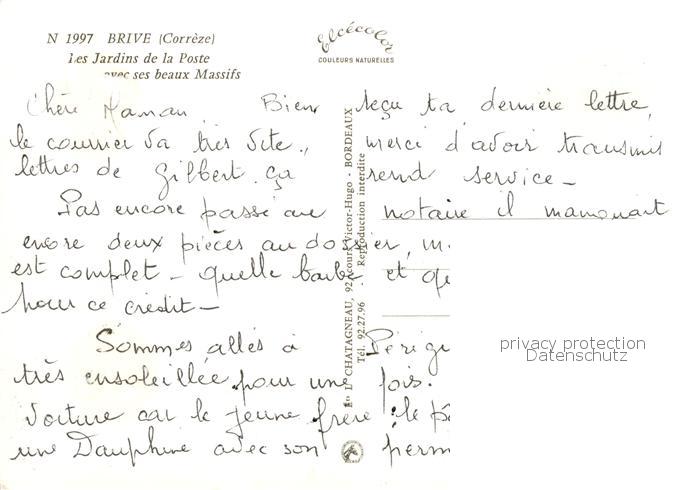 N 1997 BRIVE (Corrèze)
Les Jardins de la Poste
avec ses beaux Massifs
Elcécolor
COULEURS NATURELLES
Chère Maman, Bien reçu ta dernière lettre,
le courrier va très vite., merci d'avoir transmis
lettres de Gilbert. ça rend service -
Pas encore passé au notaire il manquait
encore deux pièces au dossier, m.
est complet - quelle barbe et qu
pour ce crédit -
Sommes allés à Périgu
très ensoleillée pour une fois.
Voiture car le jeune frère : le pè
une Dauphine avec son perm
CHATAGNEAU, 92, cours Victor-Hugo - BORDEAUX
Tél. 92.27.96 - Reproduction interdite
privacy protection
Datenschutz